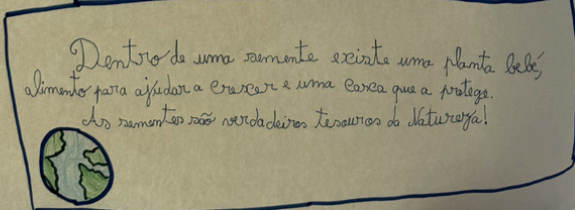 Dentro de uma semente existe uma planta bebé,
alimento para ajudar a crescer e uma casca que a protege.
As sementes são verdadeiros tesouros da Natureza!